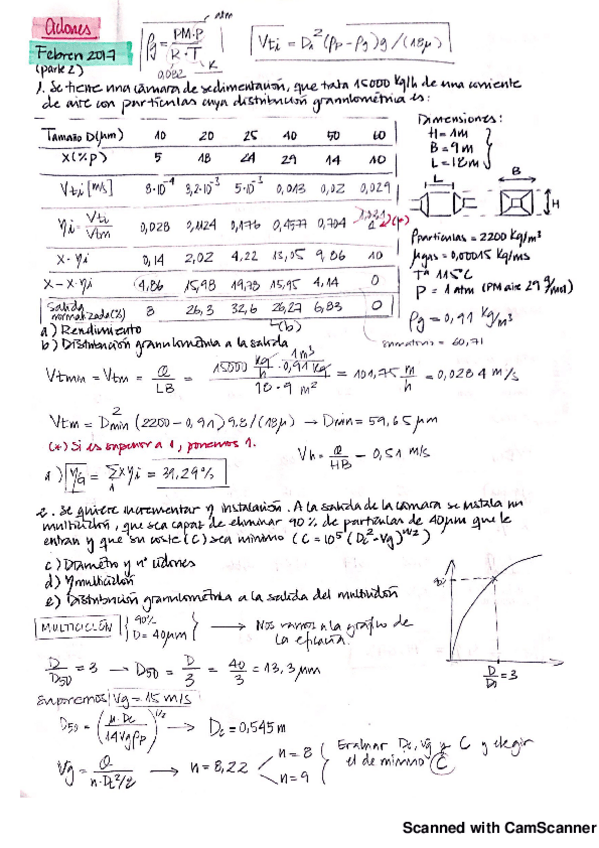 Ciclones
Febrero 2017
(parte 2)
ρg = PM·P / R·T
0,082 K
Vti = Di²(ρp - ρg)g/(18μ)
1. Se tiene una cámara de sedimentación, que trata 15000 kg/h de una corriente
de aire con partículas cuya distribución granulométrica es:
Tamaño D(μm) 10 20 25 40 50 60
X(%p) 5 18 24 29 14 10
Vti [m/s] 8·10⁻⁴ 3,2·10⁻³ 5·10⁻³ 0,013 0,02 0,029
ηi = Vti/Vtm 0,028 0,1124 0,176 0,4577 0,704 1 (*)
X·ηi 0,14 2,02 4,22 13,05 9,86 10
X - X·ηi 4,86 15,98 19,78 15,95 4,14 0
Salida normalizada(%) 8 26,3 32,6 26,27 6,83 0
(b)
Dimensiones:
H = 1m
B = 9m
L = 18m
L B H
ρpartículas = 2200 kg/m³
μgas = 0,00015 kg/ms
Tª 115°C
P = 1 atm (PM aire 29 g/mol)
ρg = 0,91 kg/m³
sumatorio = 60,71
a) Rendimiento
b) Distribución granulometría a la salida
Vtmin = Vtm = Q/LB = 15000 kg/h · 1m³/0,91 kg / 18·9 m² = 101,75 m/h = 0,0284 m/s
Vtm = Dmin² (2200 - 0,91) 9,8/(18μ) → Dmin = 59,65 μm
(*) Si es superior a 1, ponemos 1.
Vh = Q/HB - 0,51 m/s
a) ηG = Σ X ηi = 39,29%
2. Se quiere incrementar η instalación. A la salida de la cámara se instala un
multiciclón, que sea capaz de eliminar 90% de partículas de 40μm que le
entran y que su coste (C) sea mínimo (C = 10⁵ (Dc²·Vg)^1/2)
c) Diámetro y nº ciclones
d) η multiciclón
e) Distribución granulometría a la salida del multiciclón
MULTICICLÓN { 90% D = 40μm } → Nos vamos a la gráfica de
la eficacia.
90%
D/D50 = 3 → D50 = D/3 = 40/3 = 13,3 μm
suponemos Vg = 15 m/s
D50 = (μ·Dc / 14 Vg ρp)^1/2 → Dc = 0,545 m
Vg = Q / n·Dc²/2 → n = 8,22
n = 8
n = 9
Evaluar Dc, Vg y C y elegir
el de mínimo C
Scanned with CamScanner